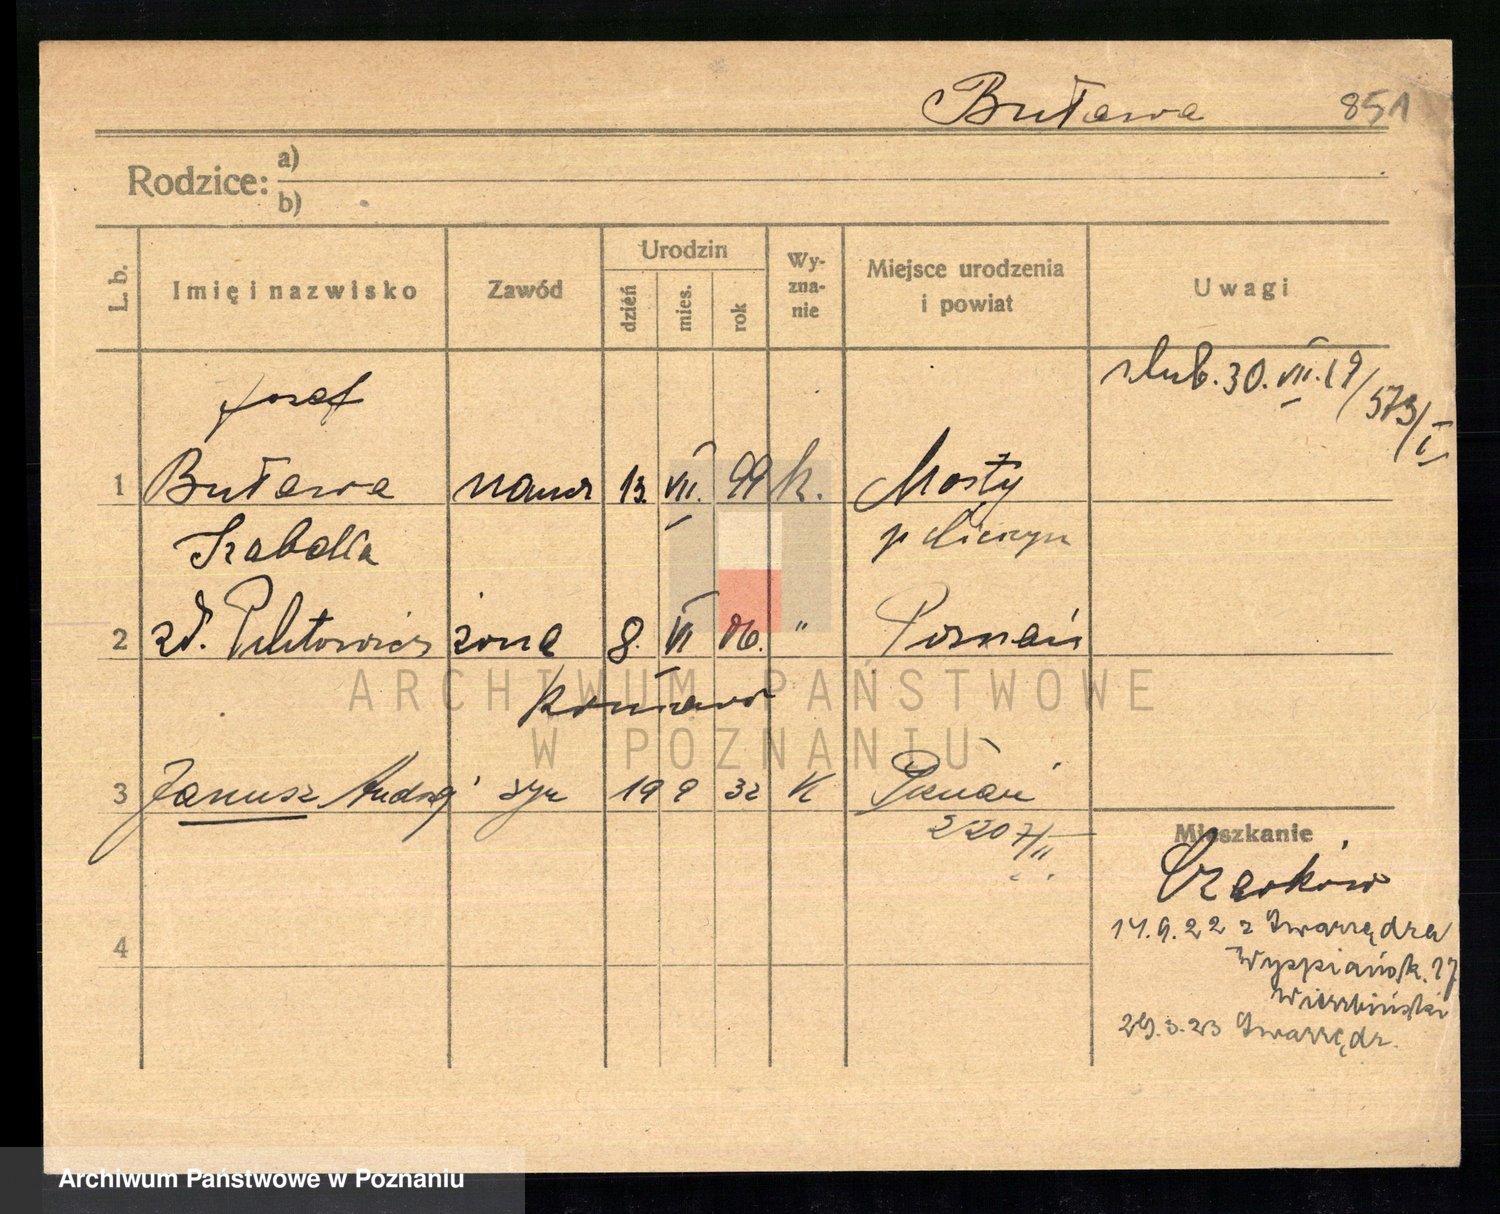 Buława 851
Rodzice: a)
b)
L. b. Imię i nazwisko Zawód Urodzin dzień mies. rok Wy-zna-nie Miejsce urodzenia i powiat Uwagi
ślub. 30. VII. 19/573/I
Józef
1 Buława naucz 13. VII. 99 k. Mosty
Izabella p
2 zd. żona 8. VI 06. " Poznań
3 Janusz Andrzej syn 19 9 32 K Poznań
2207/II
Mieszkanie
17.9.22 z Swarzędza
Wyspiańsk. 17
Wierzbiński
29.3.23 Swarzędz.
4
ARCHIWUM PAŃSTWOWE
W POZNANIU
Archiwum Państwowe w Poznaniu